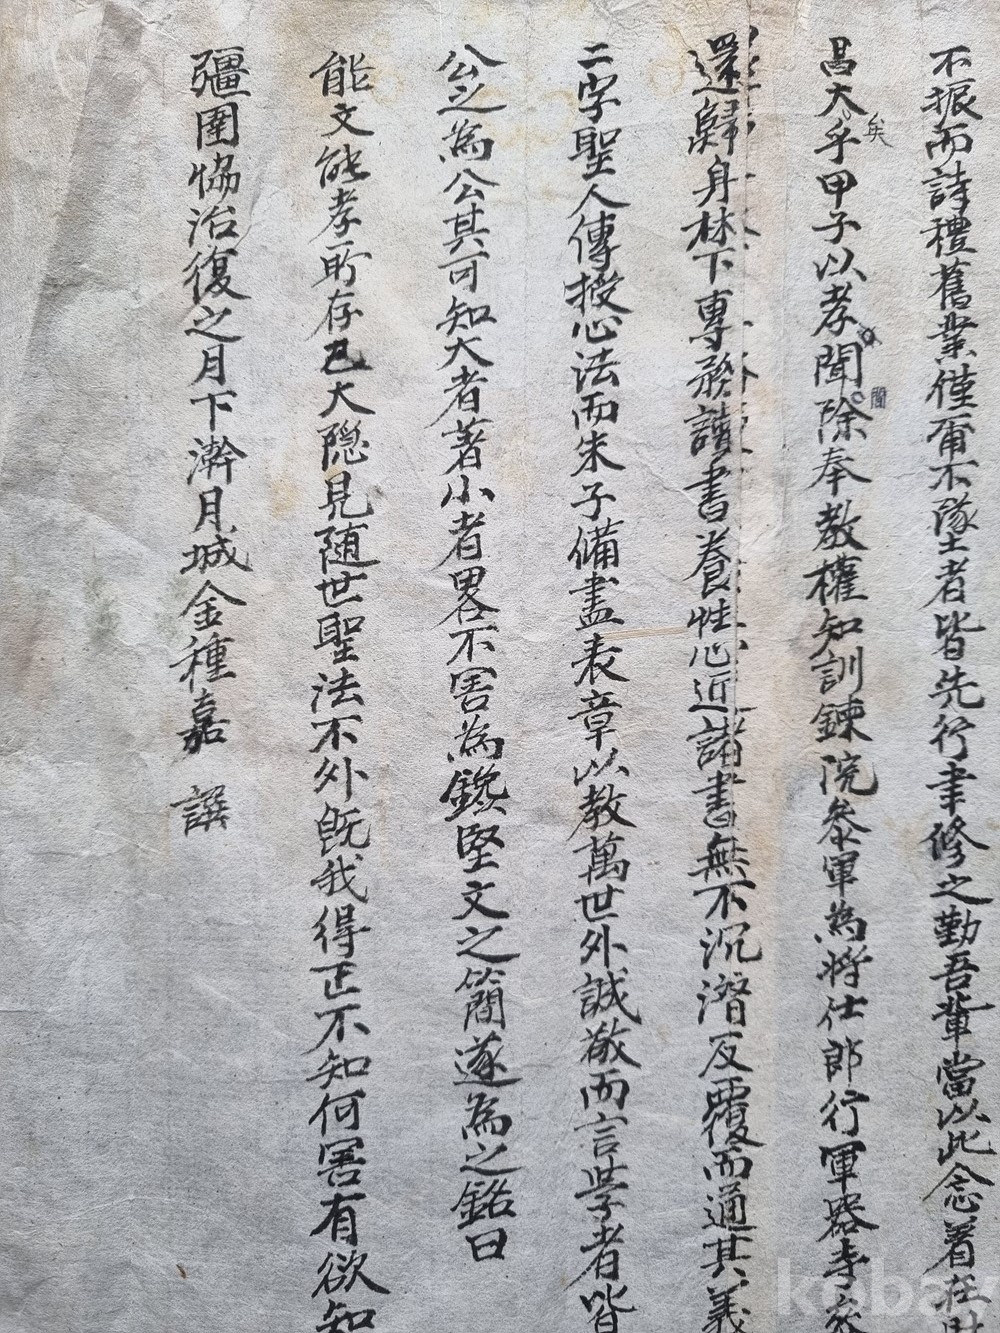 不振而詩禮舊業僅甭不隊土者皆先行聿修之勤吾輩當以此念着在
昌大乎甲子以孝聞除奉教權知訓鍊院叅軍為將仕郎行軍器寺
矣
閣
還歸身林下專務讀書養性心近諸書無不沉潛反覆而通其義
二字聖人傳授心法而朱子備盡表章以教萬世外誠敬而言學者皆
公之為公其可知大者著小者畧不害為鑱堅文之簡遂為之銘曰
能文能孝所存已大隐見随世聖法不外旣我得正不知何害有欲知
彊圉恊洽復之月下澣月城金種嘉 譔
kobay